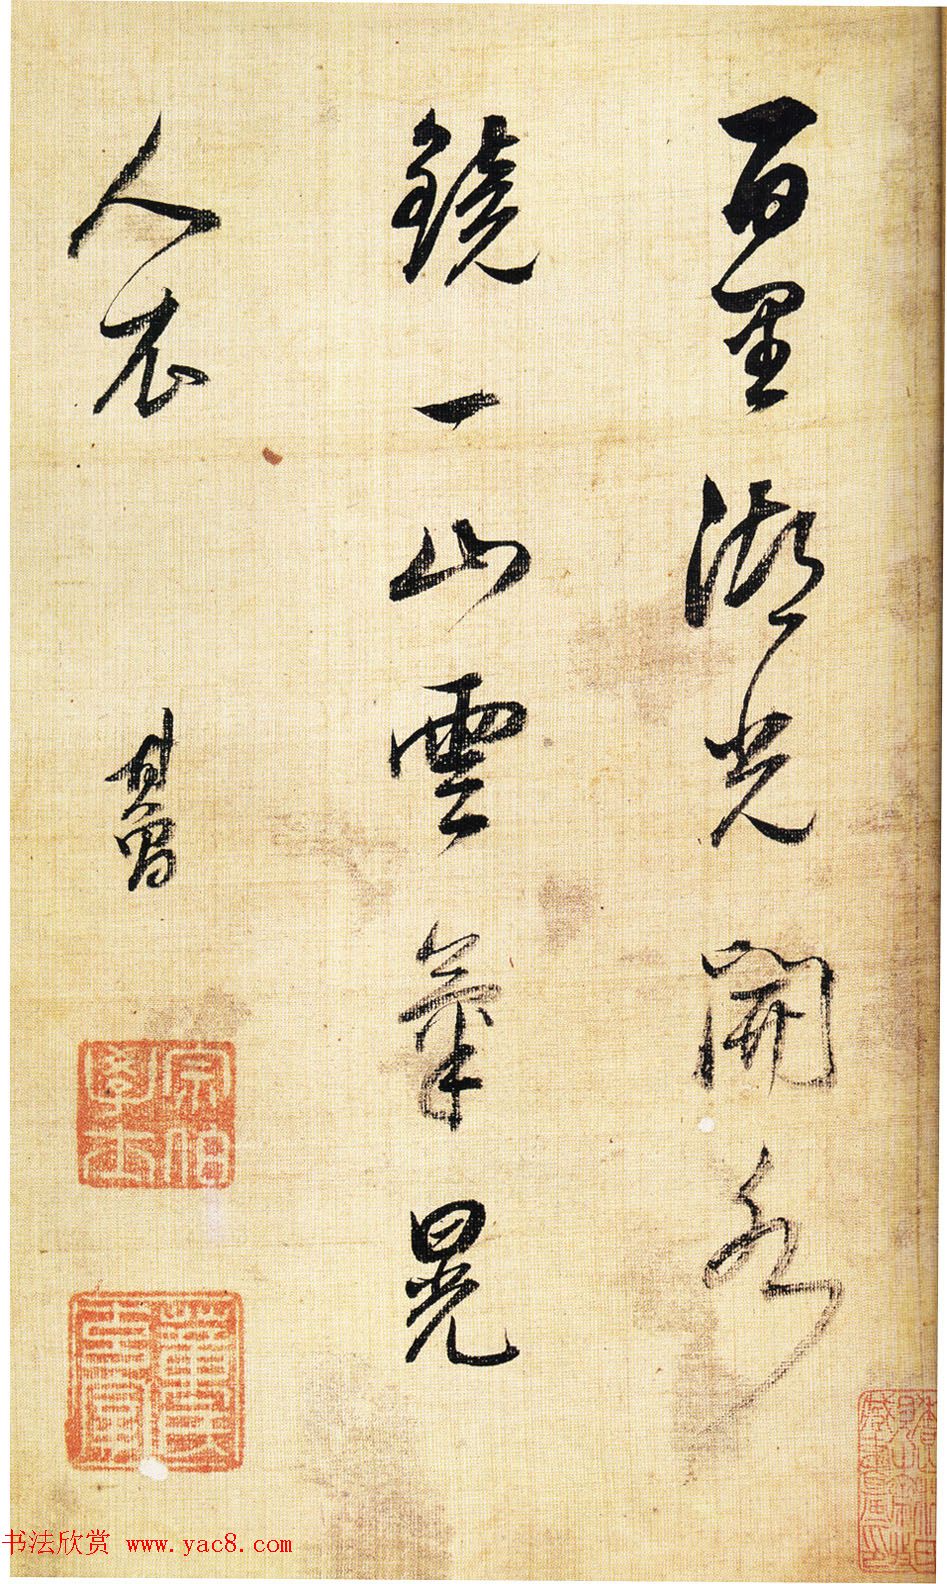 百里湖光開水
鏡一山雲氣晃
人衣
其昌
宗伯學士
董氏玄宰
书法欣赏 www.yac8.com